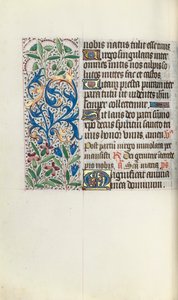 nobis natus tulit esse tuus
Virgo singularis inter
omnes mitis nos culpis so
lutos mites fac et castos
Vitam presta puram iter
para tutum ut videntes ihm
semper colletemur
Sit laus deo patri summo
xpo decus spiritui sancto tri
nus honor unus. amen
Post partum virgo inviolata per
mansisti Dei genitrix interce
pro nobis
Magnificat anima
mea dominum